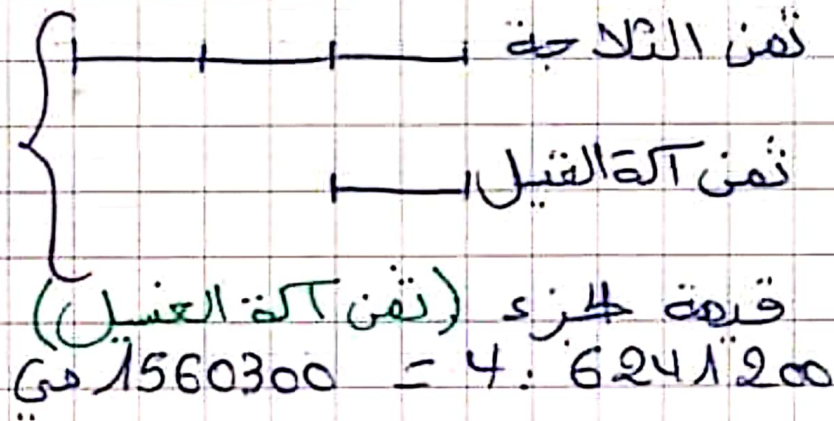 ثمن الثلاجة
ثمن آلة الغسيل
قيمة الجزء (ثمن آلة الغسيل)
6241200 : 4 = 1560300 مي